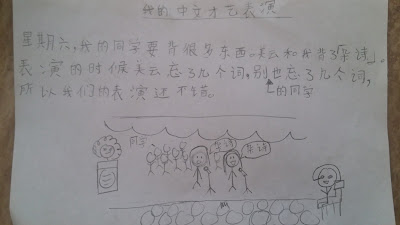 我的中文才艺表演
星期六,我的同学要背很多东西。美云和我背了「杂诗」。
表演的时候美云忘了几个词,别也忘了几个词,
所以我们的表演还不错。
的同学
同学
杂诗
杂诗